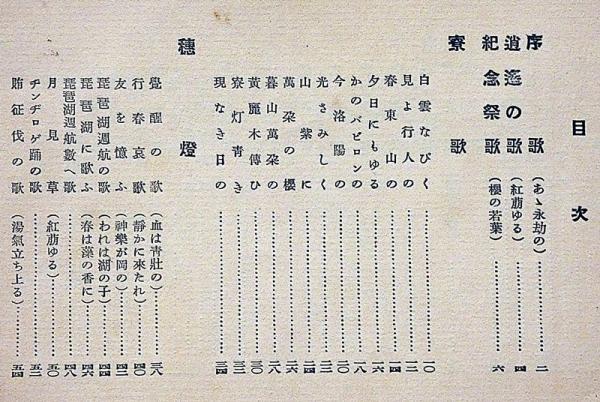 目次
序歌(あゝ永劫の)……二
逍遙の歌(紅萠ゆる)……四
紀念祭歌(櫻の若葉)……六
寮歌
白雲なびく……一〇
見よ行人の……一二
春東山の……一四
夕日にもゆる……一六
かのバビロンの……一八
今洛陽の……二〇
光さみしく……二二
山紫に……二四
萬朶の櫻……二六
暮山萬朶の……二八
黄麗木傳ひ……三〇
寮灯青き……三二
現なき日の……三四
穗燈
覺醒の歌(血は青壯の)……三八
行春哀歌(靜かに來たれ)……四〇
友を憶ふ(神樂が岡の)……四二
琵琶湖週航の歌(われは湖の子)……四四
琵琶湖に歌ふ(春は藻の香に)……四六
琵琶湖週航數へ歌……四八
月見草(紅萠ゆる)……五〇
デンヂロゲ踊の歌……五二
賄征伐の歌(湯氣立ち上る)……五四